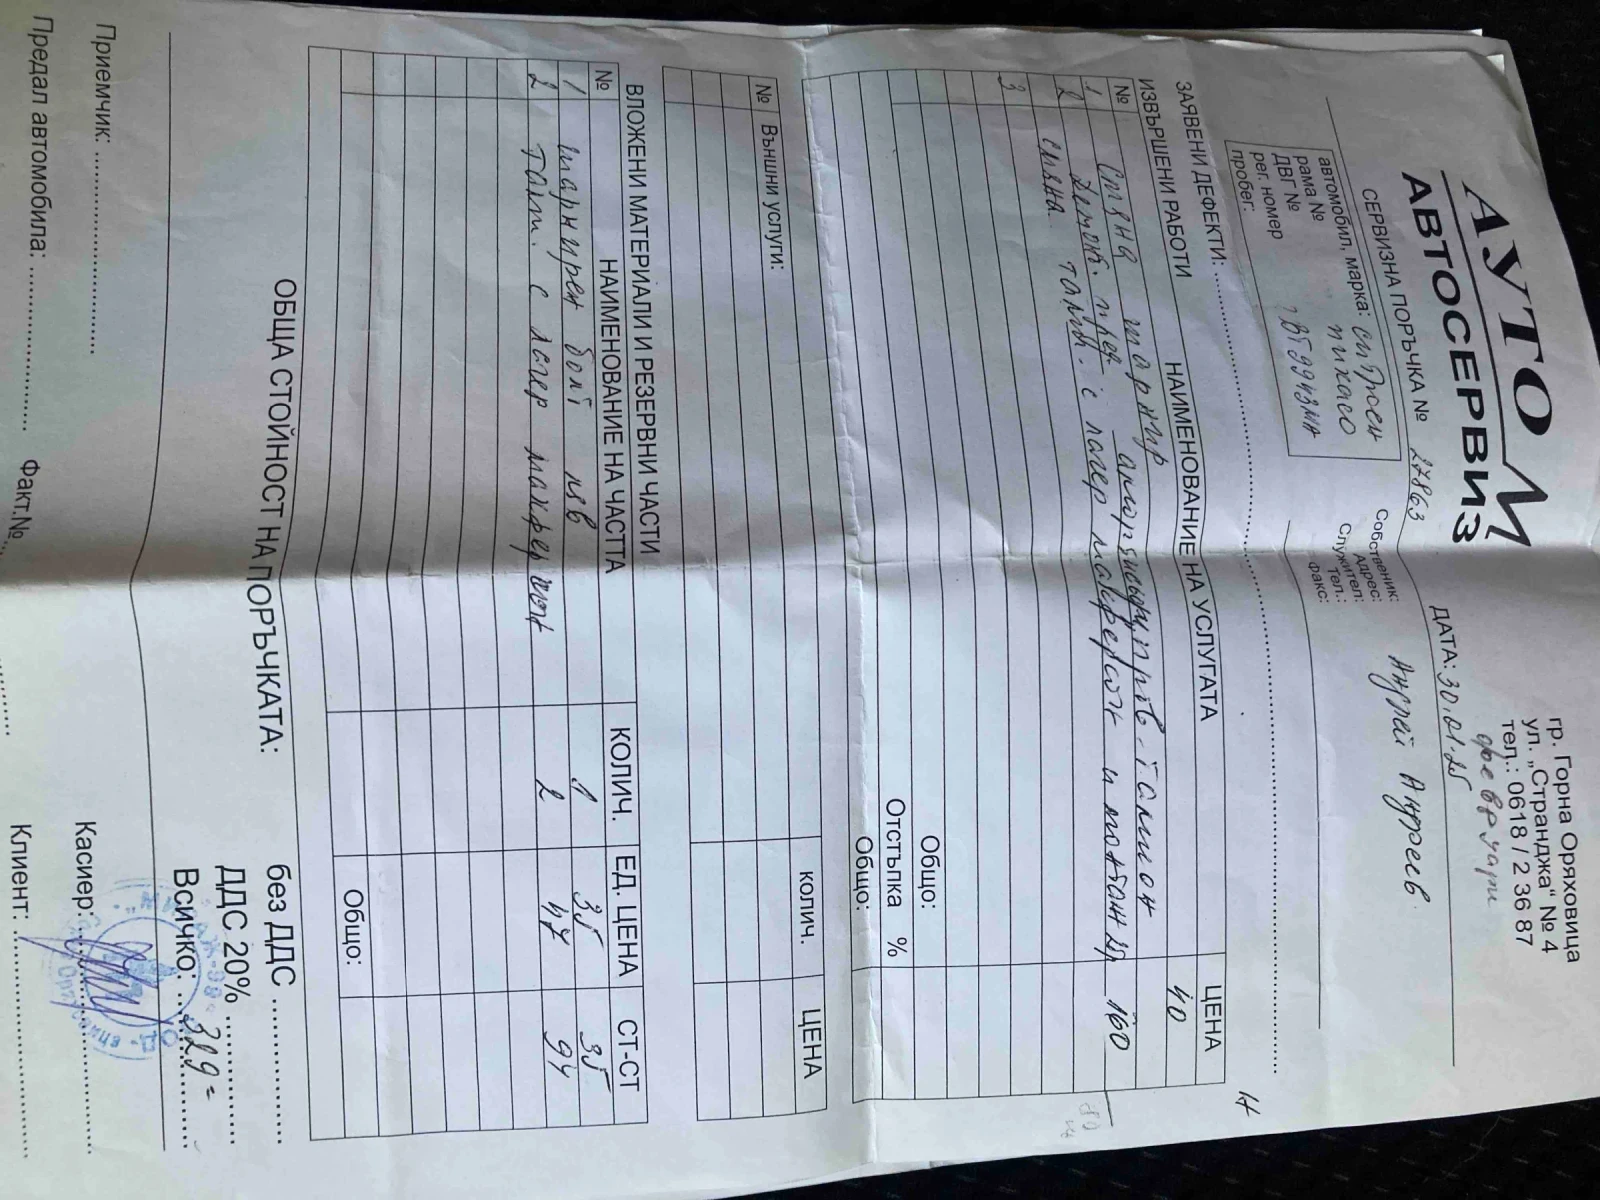 АУТО М
АВТОСЕРВИЗ
гр. Горна Оряховица
ул. „Странджа“ № 4
тел.: 0618 / 2 36 87
февруари
СЕРВИЗНА ПОРЪЧКА № 27863
ДАТА: 30.01.25
автомобил, марка: ситроен
пикасо
рама №
ДВГ №
рег. номер
пробег:
Собственик:
Адрес:
Служител:
Тел.:
Факс:
Андрей Андреев
ЗАЯВЕНИ ДЕФЕКТИ:
ИЗВЪРШЕНИ РАБОТИ
№ НАИМЕНОВАНИЕ НА УСЛУГАТА ЦЕНА
1 Смяна шарнир 40
2 Демонт. пред. и монтаж 160
3 смяна тамп. с лагер макферсон
Общо:
Отстъпка %
Общо:
№ Външни услуги: колич. ЦЕНА
ВЛОЖЕНИ МАТЕРИАЛИ И РЕЗЕРВНИ ЧАСТИ
№ НАИМЕНОВАНИЕ НА ЧАСТТА КОЛИЧ. ЕД. ЦЕНА СТ-СТ
1 шарнирен болт ляв 1 35 35
2 Тамп. с лагер макферсон 2 47 94
Общо:
ОБЩА СТОЙНОСТ НА ПОРЪЧКАТА:
без ДДС
ДДС 20%
Всичко: 329=
Приемчик:
Касиер:
Предал автомобила:
Факт.№
Клиент: